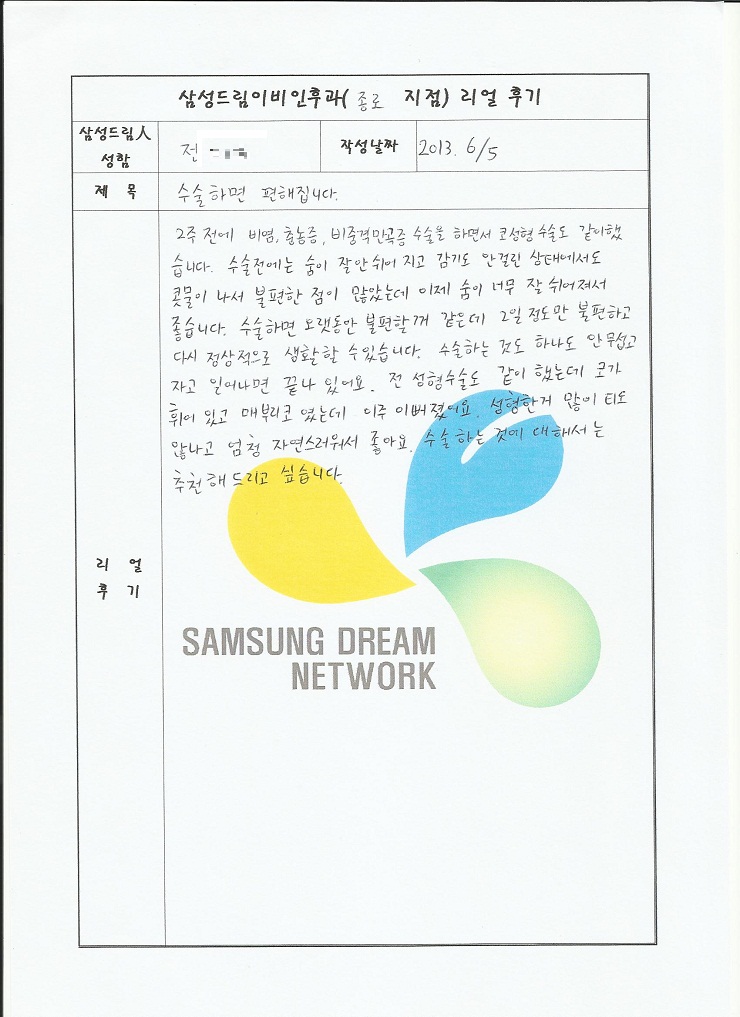 삼성드림이비인후과( 종로 지점) 리얼 후기
삼성드림人 성함
전
작성날짜
2013. 6/5
제 목
수술하면 편해집니다.
리 얼
후 기
2주 전에 비염, 축농증, 비중격만곡증 수술을 하면서 코성형수술도 같이했
습니다. 수술전에는 숨이 잘안쉬어 지고 감기도 안걸린 상태에서도
콧물이 나서 불편한 점이 많았는데 이제 숨이 너무 잘 쉬어져서
좋습니다. 수술하면 오랫동안 불편할꺼 같은데 2일 정도만 불편하고
다시 정상적으로 생활할 수있습니다. 수술하는 것도 하나도 안무섭고
자고 일어나면 끝나 있어요. 전 성형수술도 같이 했는데 코가
휘어 있고 매부리코 였는데 이주 이버졌어요. 성형한거 많이 티도
않나고 엄청 자연스러워서 좋아요. 수술하는 것에 대해서는
추천해드리고 싶습니다.
SAMSUNG DREAM
NETWORK